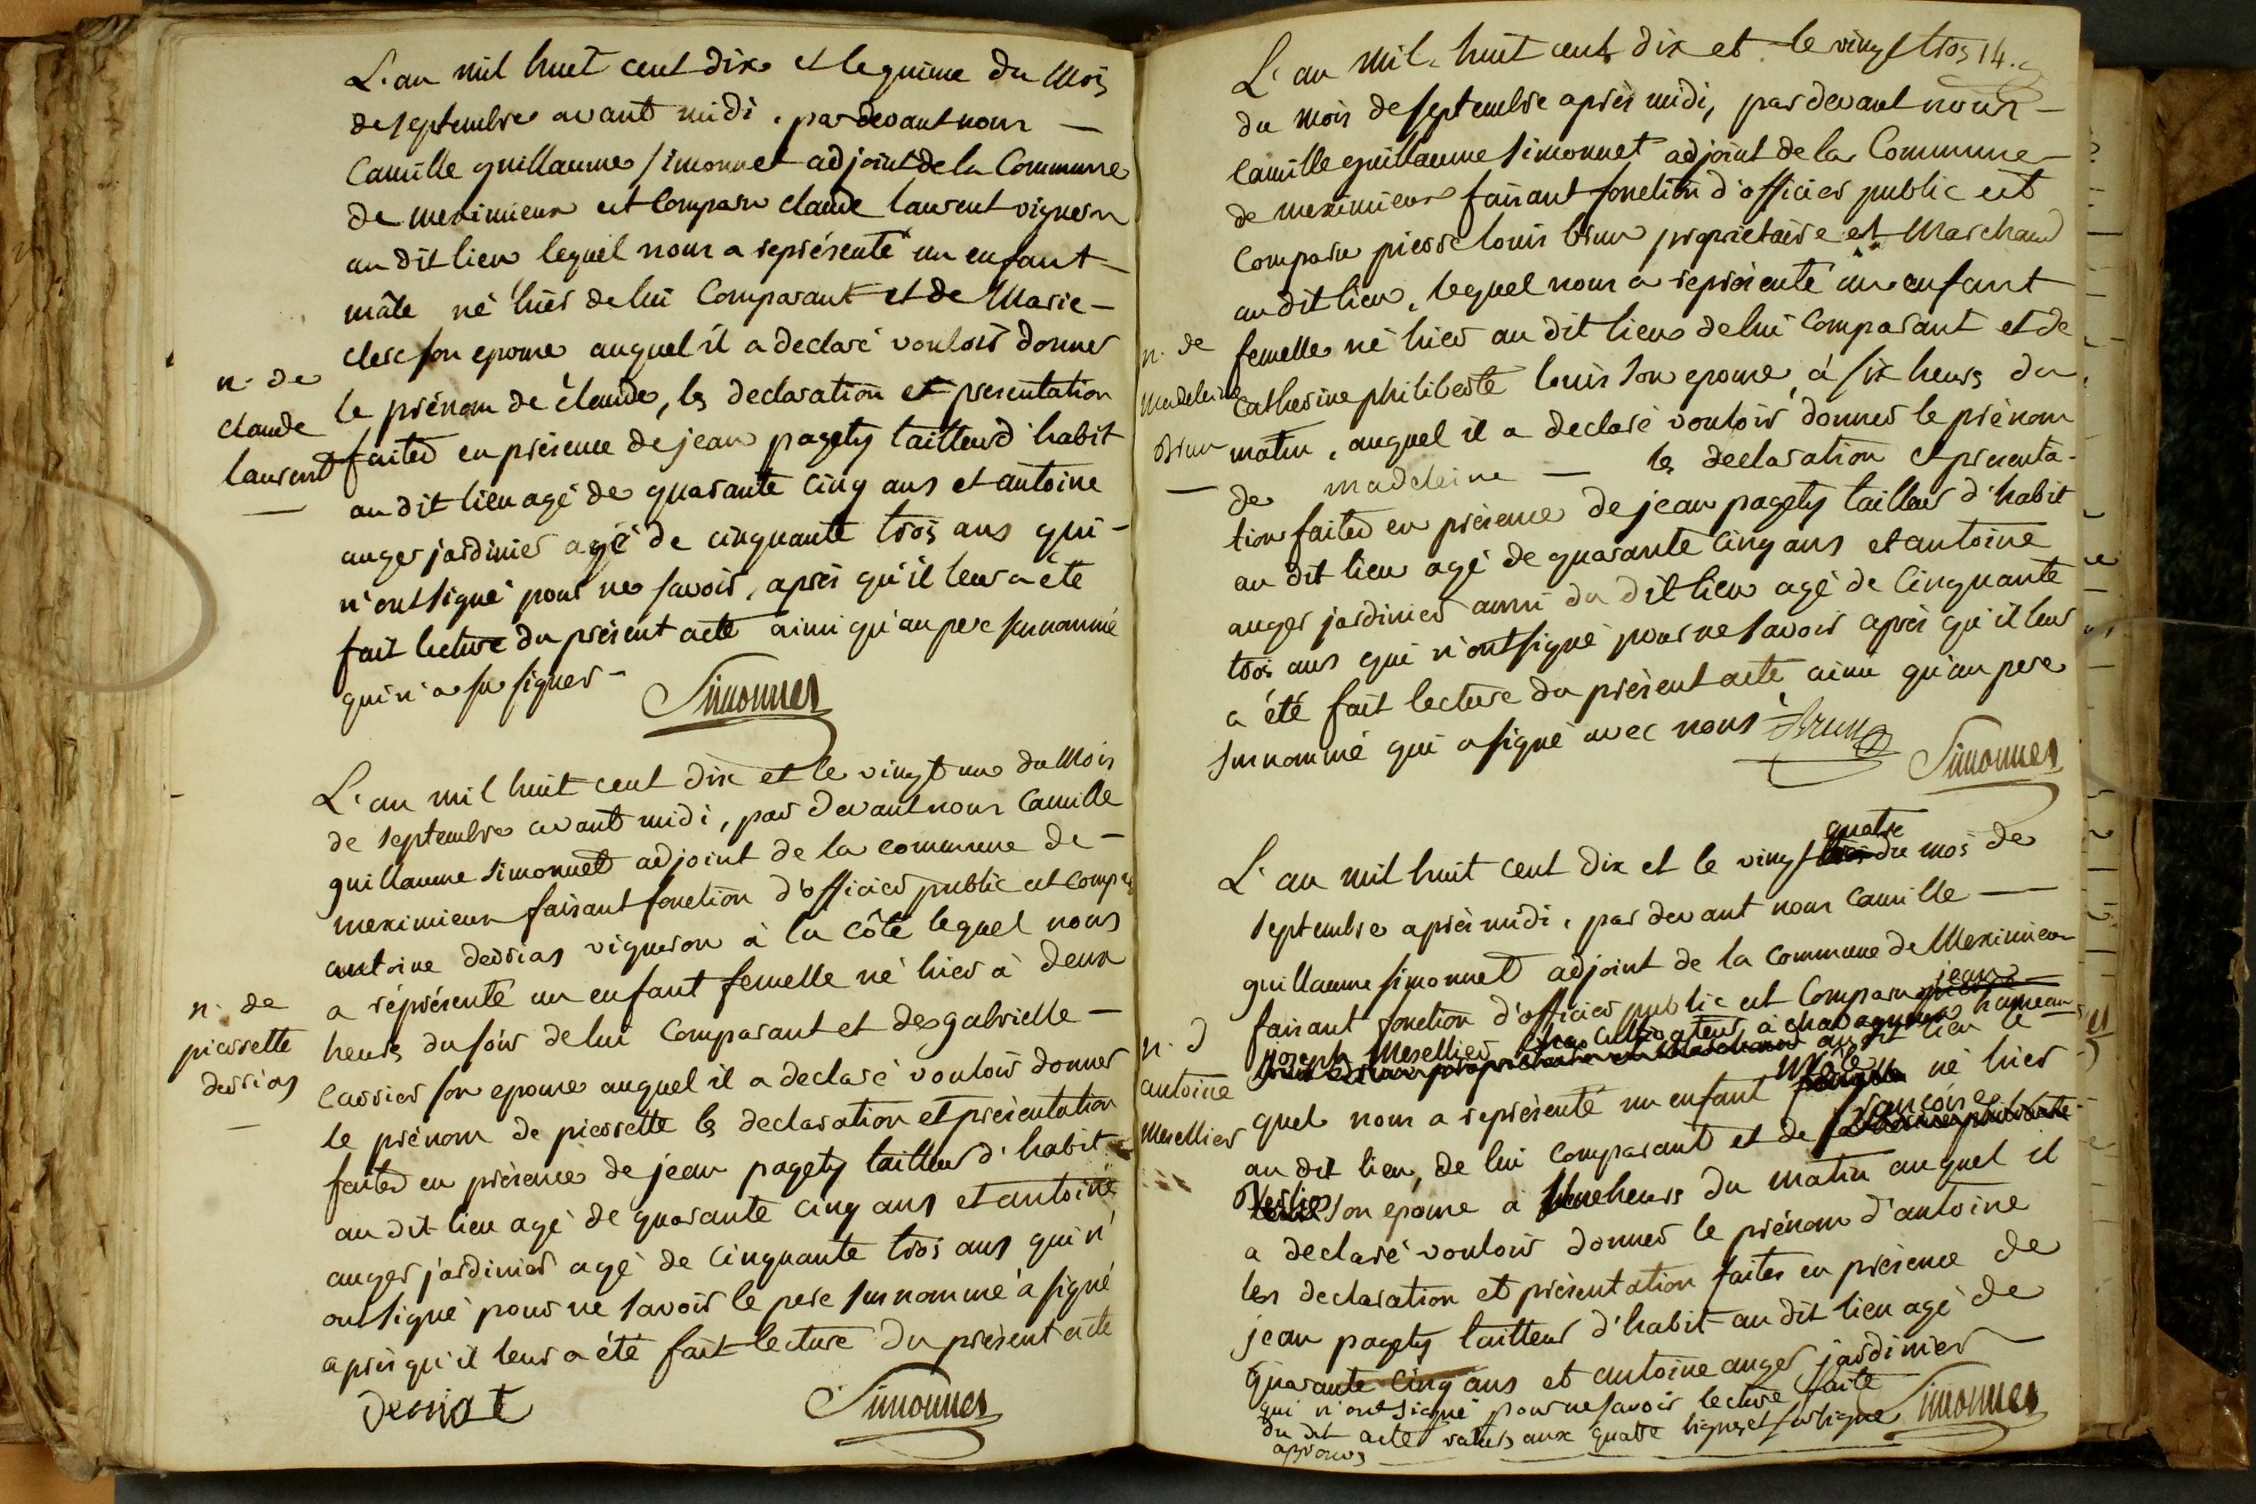 L'an mil huit cent dix et le quinze du Mois
de septembre avant midi, pardevant nous —
Camille guillaume simonnet adjoint de la Commune
de meximieux est Comparu claude laurent vigneron
au dit lieu lequel nous a représenté un enfant —
mâle né hier de lui Comparant et de Marie —
clerc son epouse auquel il a declaré vouloir donner
n. de
claude
laurent
—
le prénom de claude, les declaration et presentation
faites en présence de jean pagety tailleur d'habit
au dit lieu agé de quarante cinq ans et antoine
auger jardinier agé de cinquante trois ans qui —
n'ont signé pour ne savoir, après qu'il leur a été
fait lecture du présent acte ainsi qu'au pere surnommé
qui n'a su signer —
Simonnet
L'an mil huit cent dix et le vingt un du Mois
de septembre avant midi, par devant nous Camille
guillaume simonnet adjoint de la commune de —
meximieux faisant fonction d'officier public est comparu
antoine derrias vigneron à la côte lequel nous
a répresenté un enfant femelle né hier à deux
n. de
pierrette
derrias
—
heures du soir de lui Comparant et de gabrielle —
carrier son epouse auquel il a declaré vouloir donner
le prénom de pierrette les declaration et présentation
faites en présence de jean pagety tailleur d'habit
au dit lieu agé de quarante cinq ans et antoine
auger jardinier agé de cinquante trois ans qui n'
ont signé pour ne savoir le pere surnommé a signé
après qu'il leur a été fait lecture du présent acte
derriat Simonnet
L'an mil huit cent dix et le vingt trois 14.
du mois de septembre après midi, par devant nous —
Camille guillaume simonnet adjoint de la Commune —
de meximieux faisant fonction d'officier public est
Comparu pierre louis brun propriétaire et Marchand
au dit lieu, lequel nous a représenté un enfant
n. de
Madeleine
Brun
—
femelle né hier au dit lieu de lui Comparant et de
Catherine philiberte louis son epouse, à six heures du
matin, auquel il a declaré vouloir donner le prénom
de madeleine — les declaration et presenta-
tion faites en présence de jean pagety tailleur d'habit
au dit lieu agé de quarante cinq ans et antoine
auger jardinier aussi du dit lieu agé de Cinquante
trois ans qui n'ont signé pour ne savoir après qu'il leur
a été fait lecture du présent acte ainsi qu'au pere
surnommé qui a signé avec nous
Brun Simonnet
L'an mil huit cent dix et le vingt quatre du mois de
septembre après midi, par devant nous Camille —
guillaume simonnet adjoint de la Commune de Meximieux
faisant fonction d'officier public est Comparu jean
n. d
antoine
Mesellier
joseph Mesellier cultivateur à chavagneux hameau
au dit lieu le
quel nous a représenté un enfant mâle né hier
au dit lieu, de lui Comparant et de françoise
son epouse à heures du matin auquel il
a declaré vouloir donner le prénom d'antoine
les declaration et présentation faites en présence de
jean pagety tailleur d'habit au dit lieu agé de
quarante cinq ans et antoine auger jardinier —
qui n'ont signé pour ne savoir lecture faite
du dit acte aux quatre lignes et
approuvés
Simonnet